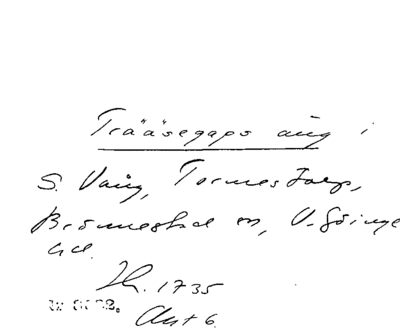 Trääsegaps äng i
S. Vång, Tormestorp,
Brönnestad sn, V. Göinge
hd.
Lh. 1735
Akt 6.